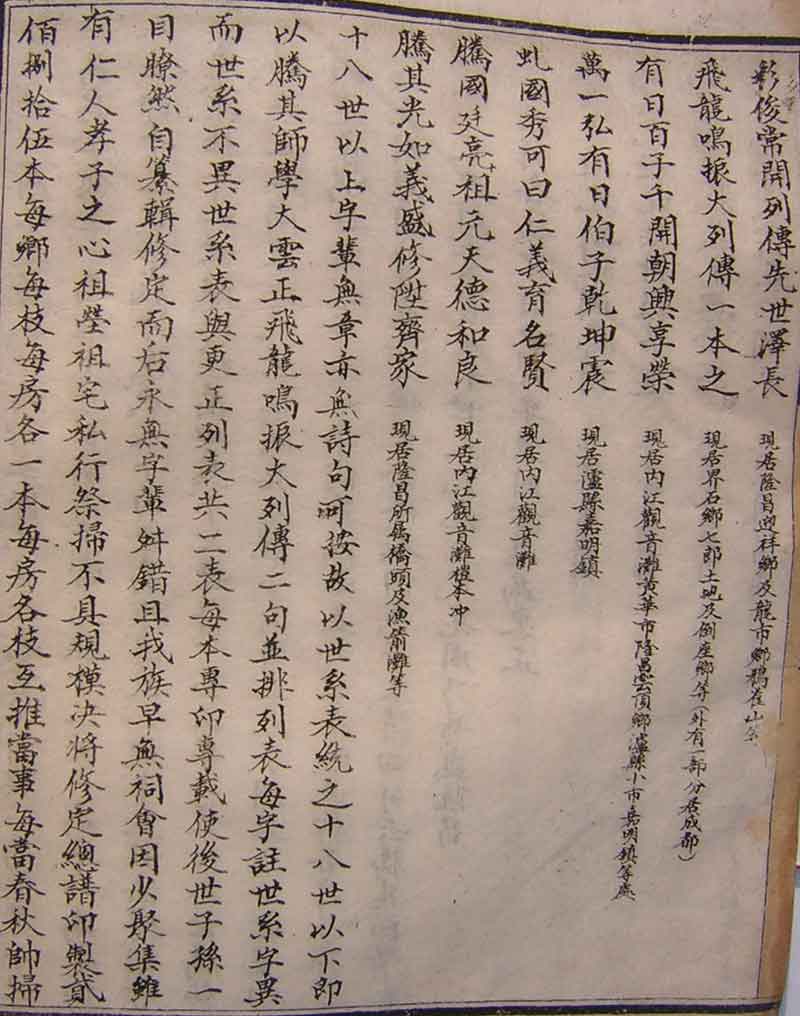 彩俊常開列傳先世澤長 現居隆昌迎祥鄉及龍市鄉鴉雀山等
飛龍鳴振大列傳一本之 現居界石鄉七郎土地及倒座鄉等(外有一部分居成都)
有日百子千開朝興享榮 現居內江觀音灘黃華市隆昌雲頂鄉瀘縣小市嘉明鎮等處
萬一弘有日伯子乾坤震 現居瀘縣嘉明鎮
虬國秀可曰仁義育名賢 現居內江觀音灘
騰國廷亮祖元天德和良 現居內江觀音灘檀木冲
騰其光如義盛修陞齊家 現居隆昌所屬僑頭及漁箭灘等
十八世以上字輩無章亦無詩句可按故以世系表統之十八世以下即
以騰其師學大雲正飛龍鳴振大列傳二句並排列表每字註世系字異
而世系不異世系表與更正列表共二表每本專印專載使後世子孫一
目瞭然自纂輯修定而后永無字輩舛錯且我族早無祠會因少聚集雖
有仁人孝子之心祖塋祖宅私行祭掃不具規模决將修定總譜印製貳
佰捌拾伍本每鄉每枝每房各一本每房各枝互推當事每當春秋帥掃